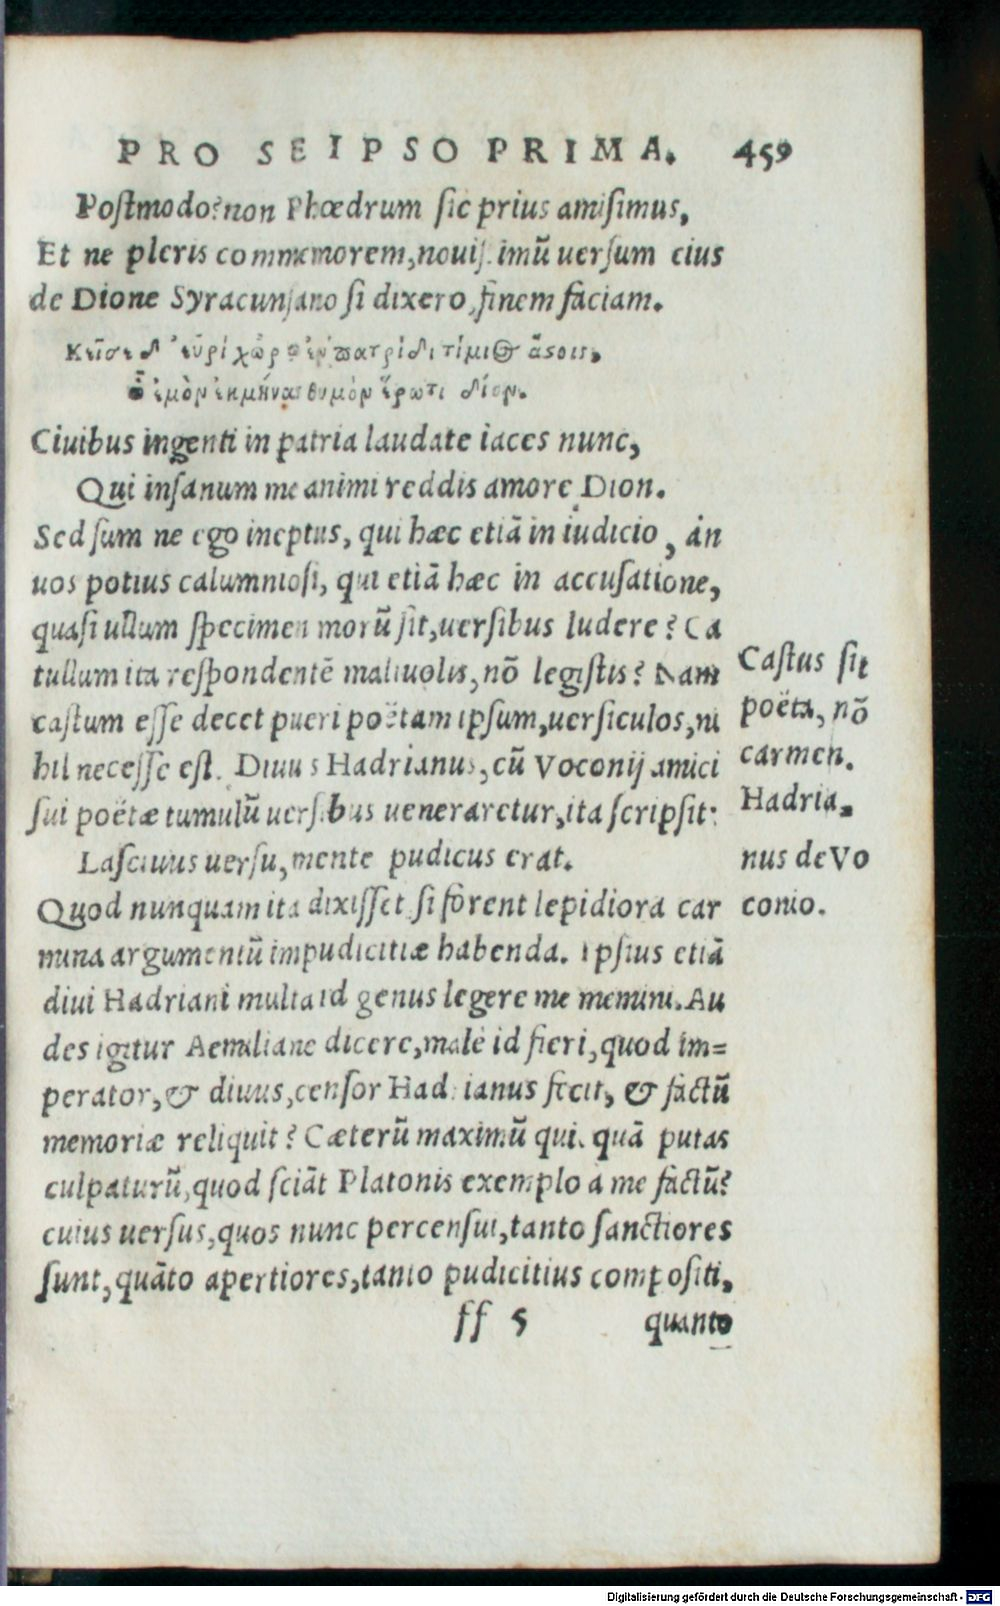 PRO SEIPSO PRIMA. 459
Postmodo? non Phœdrum sic prius amisimus,
Et ne pleris commemorem, nouissimũ uersum eius
de Dione Syracunsano si dixero, finem faciam.
Κεῖσε δ' εὐρὶ χώρῳ ἐν πατρίδι τίμιος ἄσοις.
ὦ ἐμὸν ἐκμήνας θυμὸν ἔρωτι δίον.
Ciuibus ingenti in patria laudate iaces nunc,
Qui insanum me animi reddis amore Dion.
Sed sum ne ego ineptus, qui hæc etiã in iudicio, án
uos potius calumniosi, qui etiã hæc in accusatione,
quasi ullum specimen morũ sit, uersibus ludere? Ca
tullum ita respondentẽ maliuolis, nõ legistis? Nam
castum esse decet pueri poëtam ipsum, uersiculos, ni
hil necesse est. Diuus Hadrianus, cũ Voconij amici
sui poëtæ tumulũ uersibus ueneraretur, ita scripsit:
Lasciuus uersu, mente pudicus erat.
Quod nunquam ita dixisset si forent lepidiora car
mina argumentũ impudicitiæ habenda. Ipsius etiã
diui Hadriani multa id genus legere me memini. Au
des igitur Aemiliane dicere, malè id fieri, quod im=
perator, & diuus, censor Hadrianus fecit, & factũ
memoriæ reliquit? Cæterũ maximũ qui. quã putas
culpaturũ, quod sciãt Platonis exemplo a me factũ?
cuius uersus, quos nunc percensui, tanto sanctiores
sunt, quãto apertiores, tanto pudicitius compositi,
ff 5 quanto
Castus sit
poëta, nõ
carmen.
Hadria.
nus de Vo
conio.
Digitalisierung gefördert durch die Deutsche Forschungsgemeinschaft - DFG